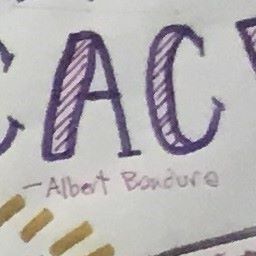 CAC
-Albert Bandura